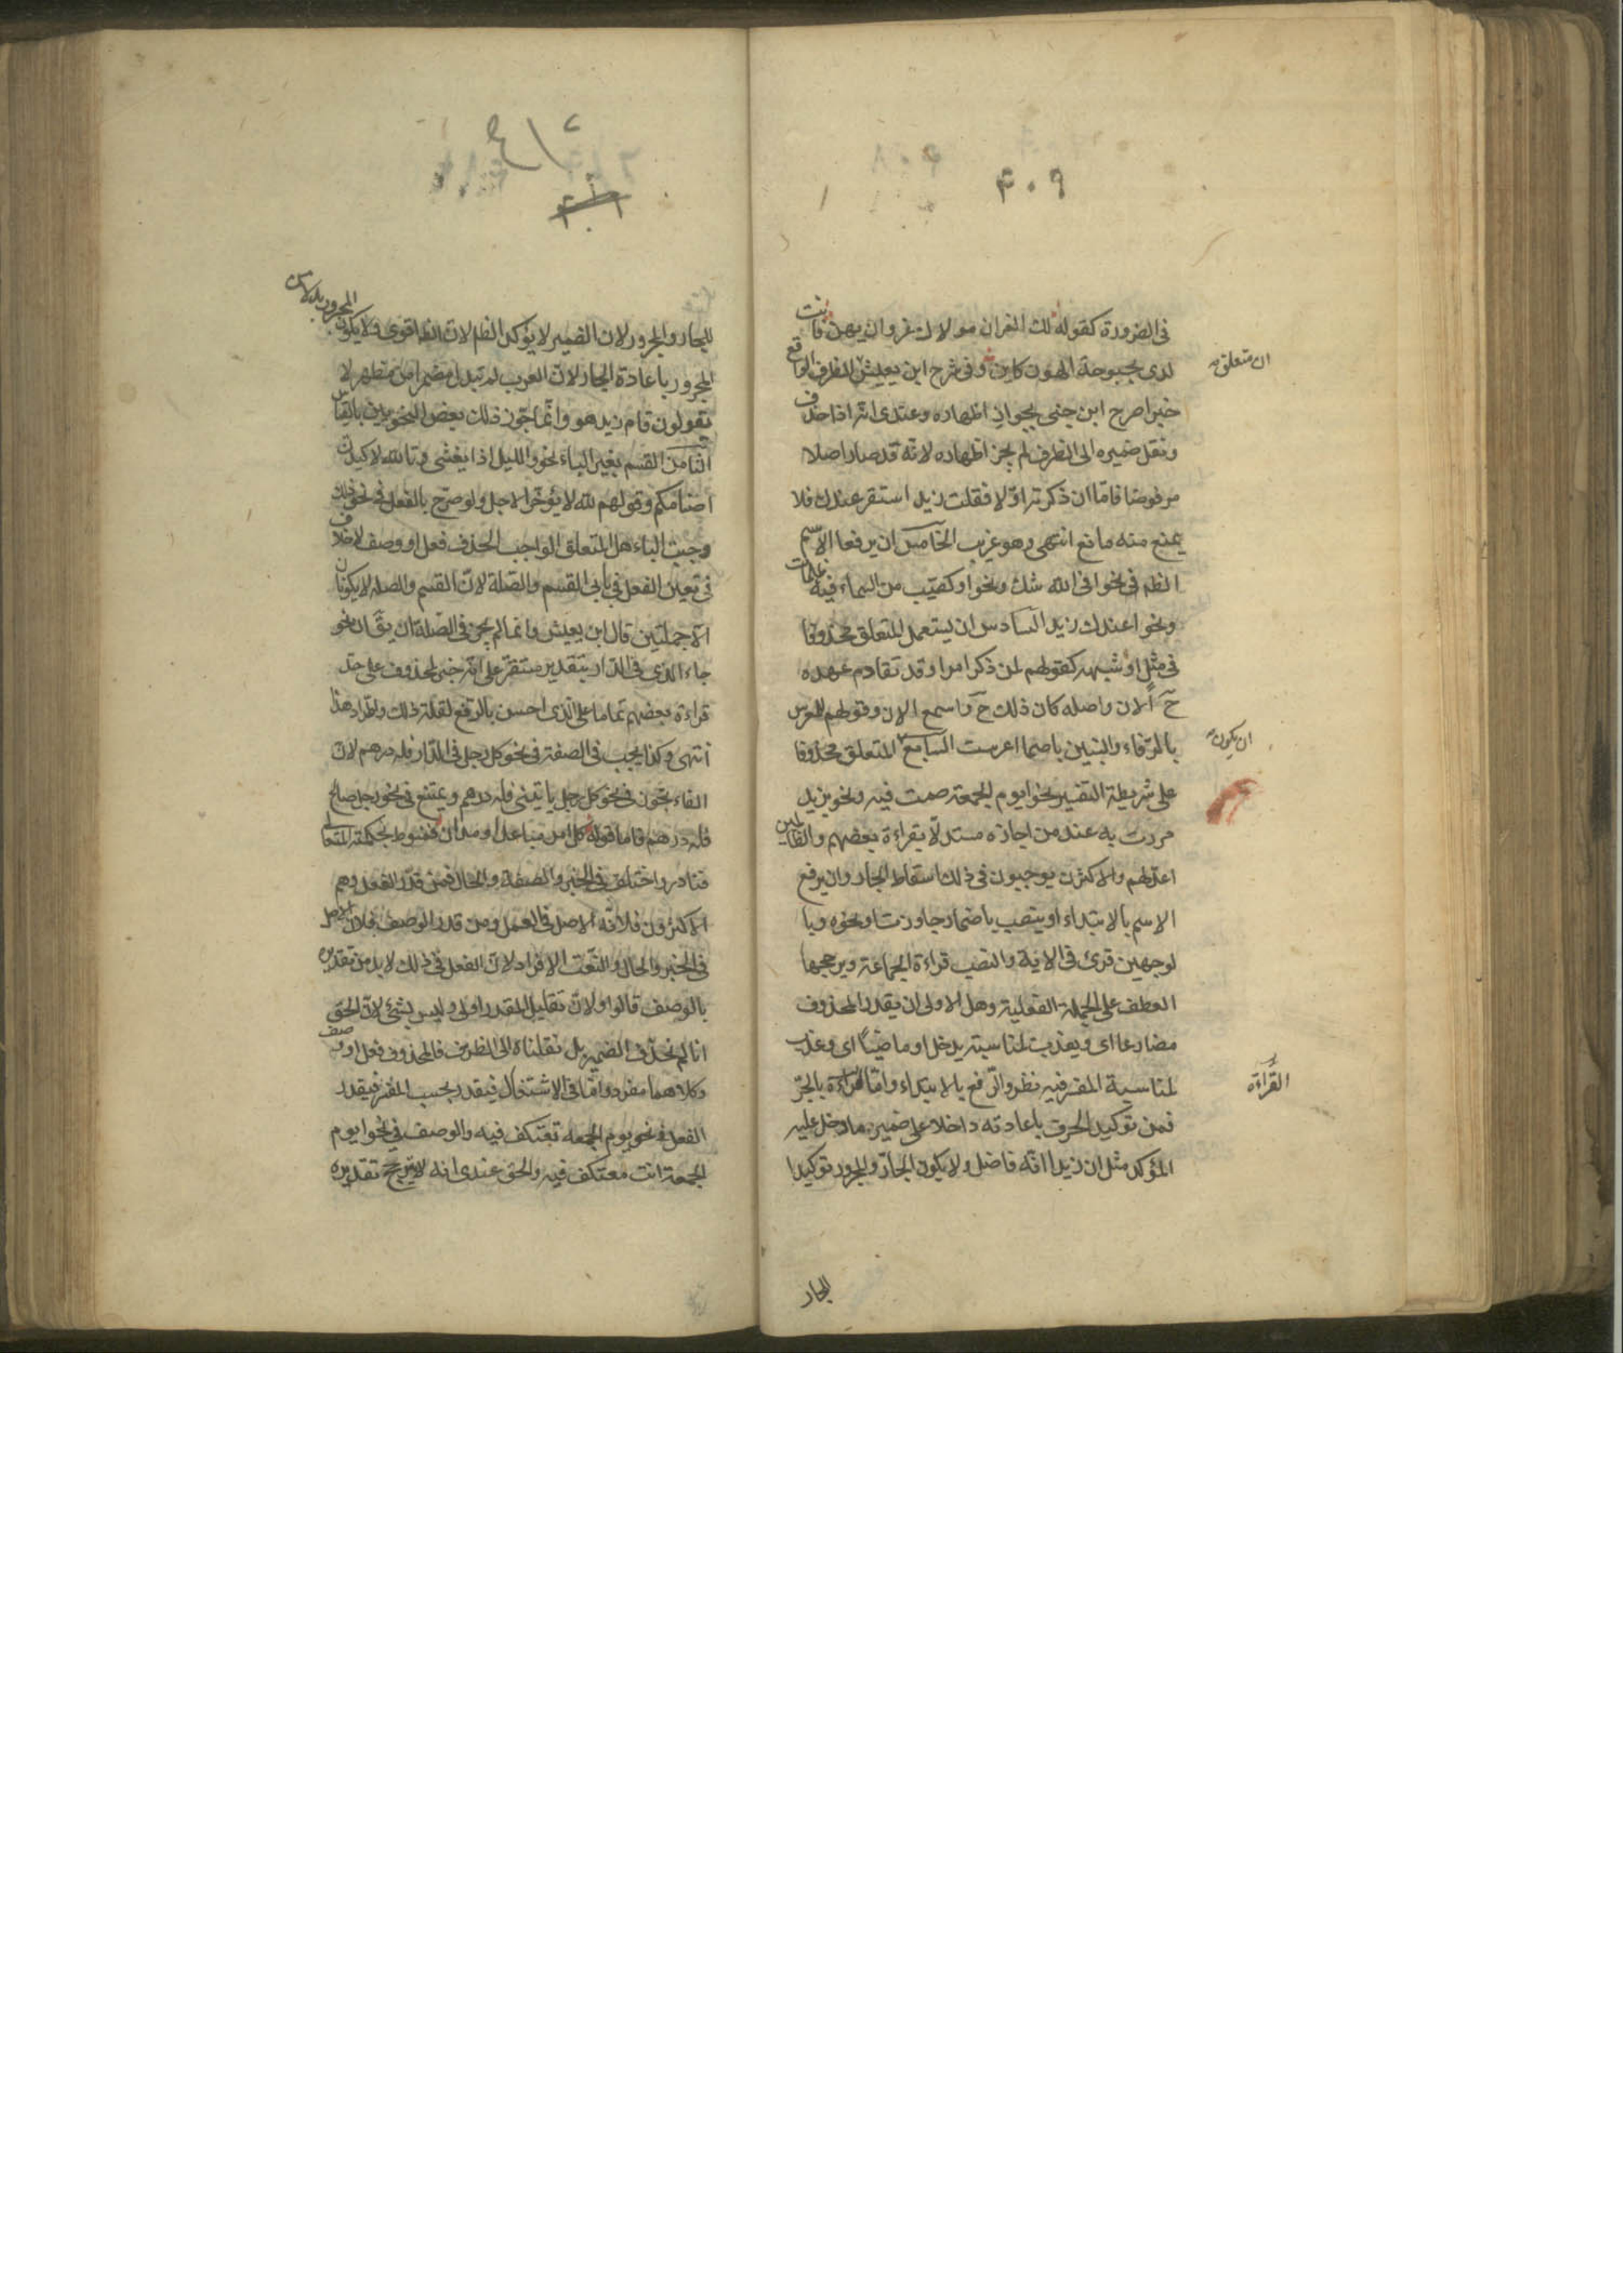 ۴۰۹
فى الضرورة كقوله لك العز ان مولاك عز وان يهن فانت
لدى بحبوحة الهون كاين وفى شرح ابن يعيش الظرف الواقع
خبرا صرح ابن جنى بجواز اظهاره وعندى انه اذا حذف
ونقل ضميره الى الظرف لم يجز اظهاره لانه قد صار اصلا
مرفوضا فاما ان ذكرته اولا فقلت زيد استقر عندك فلا
يمنع منه مانع انتهى وهو غريب الخامس ان يرفعا الاسم
الظم فى نحو افى الله شك ونحو او كصيب من السماء فيه ظلمات
ونحو اعندك زيد السادس ان يستعمل المتعلق محذوفا
فى مثل او شبهه كقولهم لمن ذكر امرا وقد تقادم عهده
ح الان واصله كان ذلك ح واسمع الان وقولهم للمعرس
بالرفاء والبنين باضمار اعرست السابع المتعلق محذوفا
على شريطة التفسير نحو ايوم الجمعة صمت فيه ونحو بزيد
مررت به عند من اجازه مستدلا بقراءة بعضهم والظالمين
اعد لهم والاكثرن يوجبون فى ذلك اسقاط الجار وان يرفع
الاسم بالابتداء او ينصب باضمار جاوزت او نحوه وبا
لوجهين قرئ فى الاية والنصب قراءة الجماعة ويرجحها
العطف على الجملة الفعلية وهل الاولى ان يقدر المحذوف
مضارعا اى ويعذب لمناسبة يدخل او ماضيا اى وعذب
لمناسبة المفسر فيه نظر والرفع بالابتداء واما القراءة بالجر
فمن توكيد الحرف باعادته داخلا على ضمير ما دخل عليه
المؤكد مثل ان زيدا انه فاضل ولا يكون الجار والمجرور توكيدا
ان متعلق
ان يكون
القراءة
للجار
للجار والمجرور لان الضمير لا يؤكد الظم لان الظم اقوى ولا يكون المجرور بدلا من
المجرور باعادة الجار لان العرب لم تبدل مضمرا من مظهر لا
يقولون قام زيد هو وانما جوز ذلك بعض النحويين بالقياس
الثامن القسم بغير الباء نحو والليل اذا يغشى وتالله لاكيدن
اصنامكم وقولهم لله لا يؤخر الاجل ولو صرح بالفعل فى نحو ذلك
وجبت الباء هل المتعلق الواجب الحذف فعل او وصف لا خلاف
فى تعين الفعل فى بابى القسم والصلة لان القسم والصله لا يكونان
الا جملتين قال ابن يعيش وانما لم يجز فى الصلة ان يق ان نحو
جاء الذى فى الدار بتقدير مستقر على انه خبر لمحذوف على حد
قراءة بعضهم تماما على الذى احسن بالرفع لقلة ذلك واطراد هذا
انتهى وكذا يجب فى الصفة فى نحو كل رجل فى الدار فله درهم لان
الفاء تجوز فى نحو كل رجل ياتينى فله درهم ويمتنع فى نحو رجل صالح
فله درهم فاما قوله كل امر مباعد او مدان فمنوط بحكمة المتعالى
فنادر واختلف فى الخبر والصفة والحال فمن قدر الفعل وهم
الاكثرون فلانه الاصل فى العمل ومن قدر الوصف فلان الاصل
فى الخبر والحال والنعت الافراد لان الفعل فى ذلك لابد من تقديره
بالوصف قالوا ولان تقليل المقدر اولى وليس بشئ لان الحق
انا لم نحذف الضمير بل نقلناه الى الظرف فالمحذوف فعل او وصف
وكلاهما مفرد واما فى الاشتغال فيقدر بحسب المفسر فيقدر
الفعل فى نحو يوم الجمعه تعتكف فيه والوصف فى نحو ايوم
الجمعة انت معتكف فيه والحق عندى انه لا يترجح تقديره